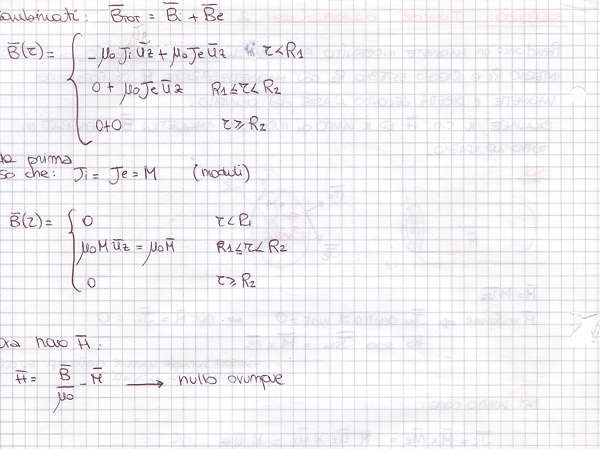 combinati: B̄TOT = B̄i + B̄e
B̄(r) = { -μ0 Ji ūz + μ0 Je ūz r < R1
0 + μ0 Je ūz R1 ≤ r < R2
0+0 r ≥ R2
da prima
so che: Ji = Je = M (moduli)
B̄(r) = { 0 r < R1
μ0 M ūz = μ0 M̄ R1 ≤ r < R2
0 r ≥ R2
ora trovo H̄:
H̄ = B̄/μ0 - M̄ → nullo ovunque